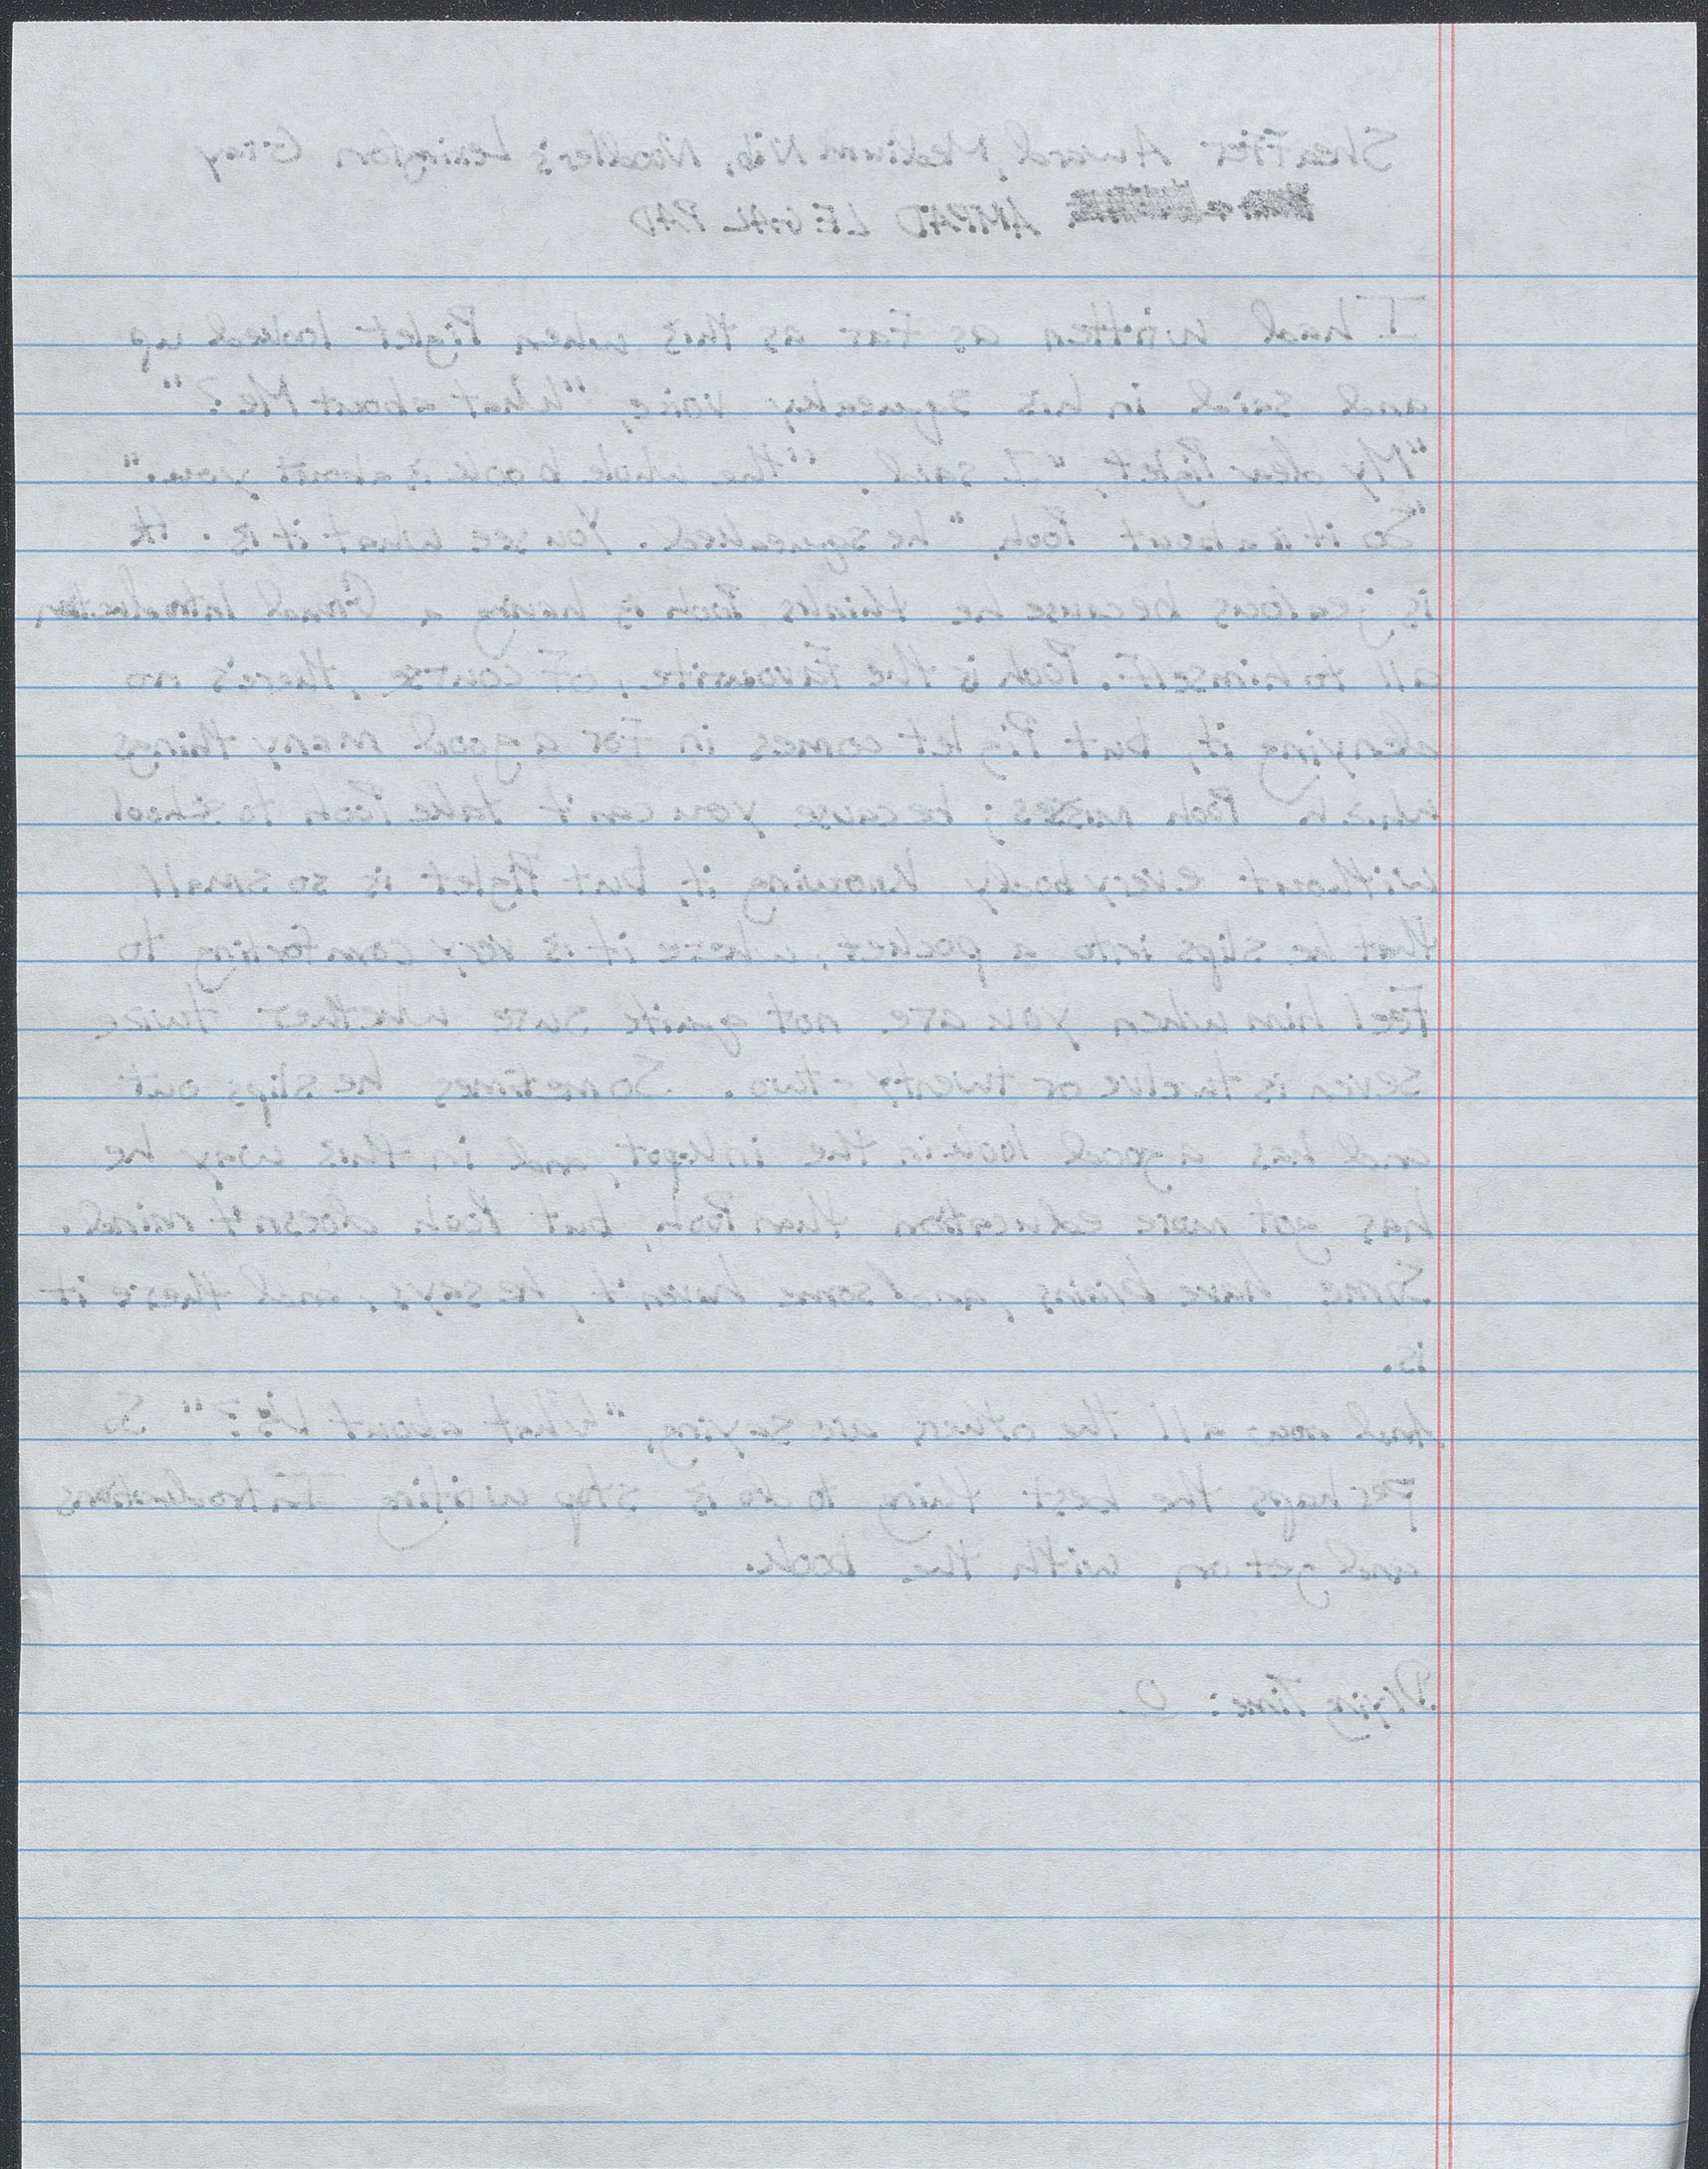 Sheaffer Award, Medium Nib, Noodler's Lexington Gray
AMPAD LEGAL PAD
I had written as far as this when Piglet looked up
and said in his squeaky voice, "What about Me?"
"My dear Piglet," I said, "the whole book is about you."
"So it is about Pooh," he squeaked. You see what it is. He
is jealous because he thinks Pooh is having a Grand Introduction
all to himself. Pooh is the favourite, of course, there's no
denying it, but Piglet comes in for a good many things
which Pooh misses; because you can't take Pooh to school
without everybody knowing it, but Piglet is so small
that he slips into a pocket, where it is very comforting to
feel him when you are not quite sure whether twice
seven is twelve or twenty-two. Sometimes he slips out
and has a good look in the inkpot, and in this way he
has got more education than Pooh, but Pooh doesn't mind.
Some have brains, and some haven't, he says, and there it
is.
And now all the others are saying, "What about Us?" So
perhaps the best thing to do is stop writing Introductions
and get on with the book.
Drying Time: 0